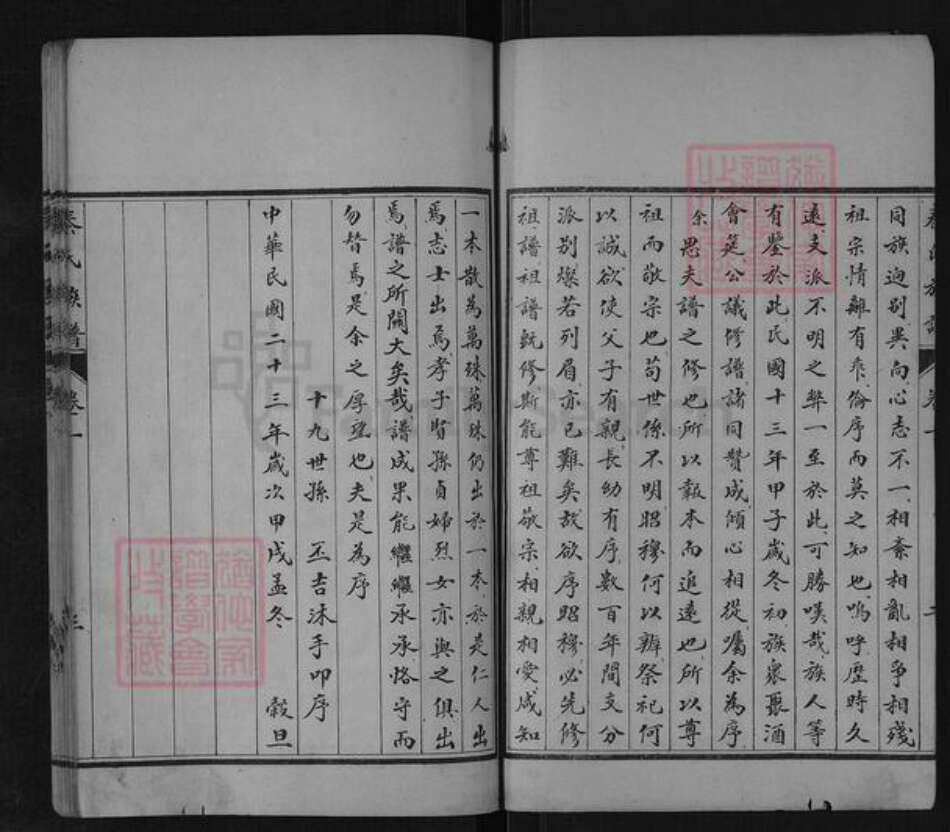 同族迥別異向心志不一相紊相亂相爭相殘
祖宗情離有乖倫序而莫之知也嗚呼歷時久
遠支派不明之弊一至於此可勝嘆哉族人等
有鑒於此民國十三年甲子歲冬初族衆聚酒
會筵公議修譜諸同贊成傾心相從囑余為序
余思夫譜之修也所以報本而追遠也所以尊
祖而敬宗也苟世係不明昭穆何以辨祭祀何
以誠欲使父子有親長幼有序數百年間支分
派別燦若列眉亦已難矣故欲序昭穆必先修
祖譜祖譜既修斯能尊祖敬宗相親相愛咸知
一本散為萬殊萬殊仍出於一本於是仁人出
焉志士出焉孝子賢孫貞婦烈女亦與之俱出
焉譜之所關大矣哉譜成果能繼繼承承恪守而
勿替焉是余之厚望也夫是為序
十九世孫 丕吉沐手叩序
中華民國二十三年歲次甲戌孟冬 穀旦
秦氏族譜 卷一 三